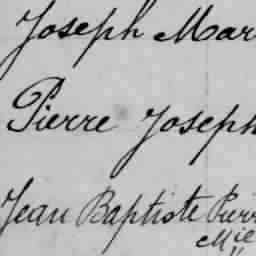 Joseph Mar
Pierre Joseph
Jean Baptiste Pierr
Mie